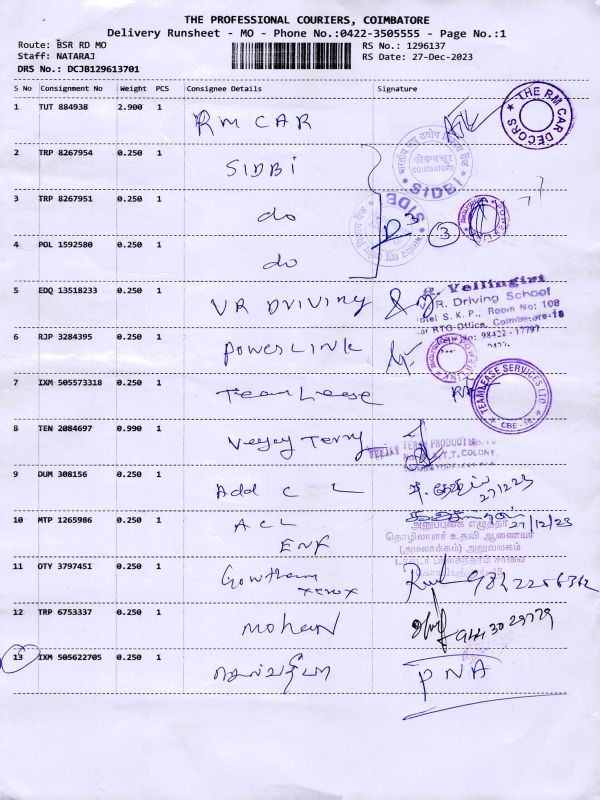 THE PROFESSIONAL COURIERS, COIMBATORE
Delivery Runsheet - MO - Phone No.:0422-3505555 - Page No.:1
Route: BSR RD MO
RS No.: 1296137
Staff: NATARAJ
RS Date: 27-Dec-2023
DRS No.: DCJB129613701
S No Consignment No Weight PCS Consignee Details Signature
1 TUT 884938 2.900 1 RM CAR
THE RM CAR DECORS
2 TRP 8267954 0.250 1 SIDBI
कोयम्बत्तूर
COIMBATORE
SIDBI
3 TRP 8267951 0.250 1 do
SIDBI
3
4 POL 1592580 0.250 1 do
5 EDQ 13518233 0.250 1 VR DRIVING
R. Vellingiri
V.R. Driving School
Hotel S. K. P., Room No: 108
Near RTO Office, Coimbatore-18
No: 98422 - 17797
6 RJP 3284395 0.250 1 POWER LINK
7 IXM 505573318 0.250 1 Team Lease
TEAMLEASE SERVICES LTD
CBE - 18
8 TEN 2084697 0.990 1 Veejay Terry
VEEJAY TERRY PRODUCTS
T.T. COLONY,
9 DUM 308156 0.250 1 Add C L
27/12/23
10 MTP 1265986 0.250 1 ACL
ENF
27/12/23
தொழிலாளர் உதவி ஆணையர்
(அமலாக்கம்) அலுவலகம்
11 OTY 3797451 0.250 1 Gowtham
xerox
12 TRP 6753337 0.250 1 MOHAN
13 IXM 505622705 0.250 1
PNA